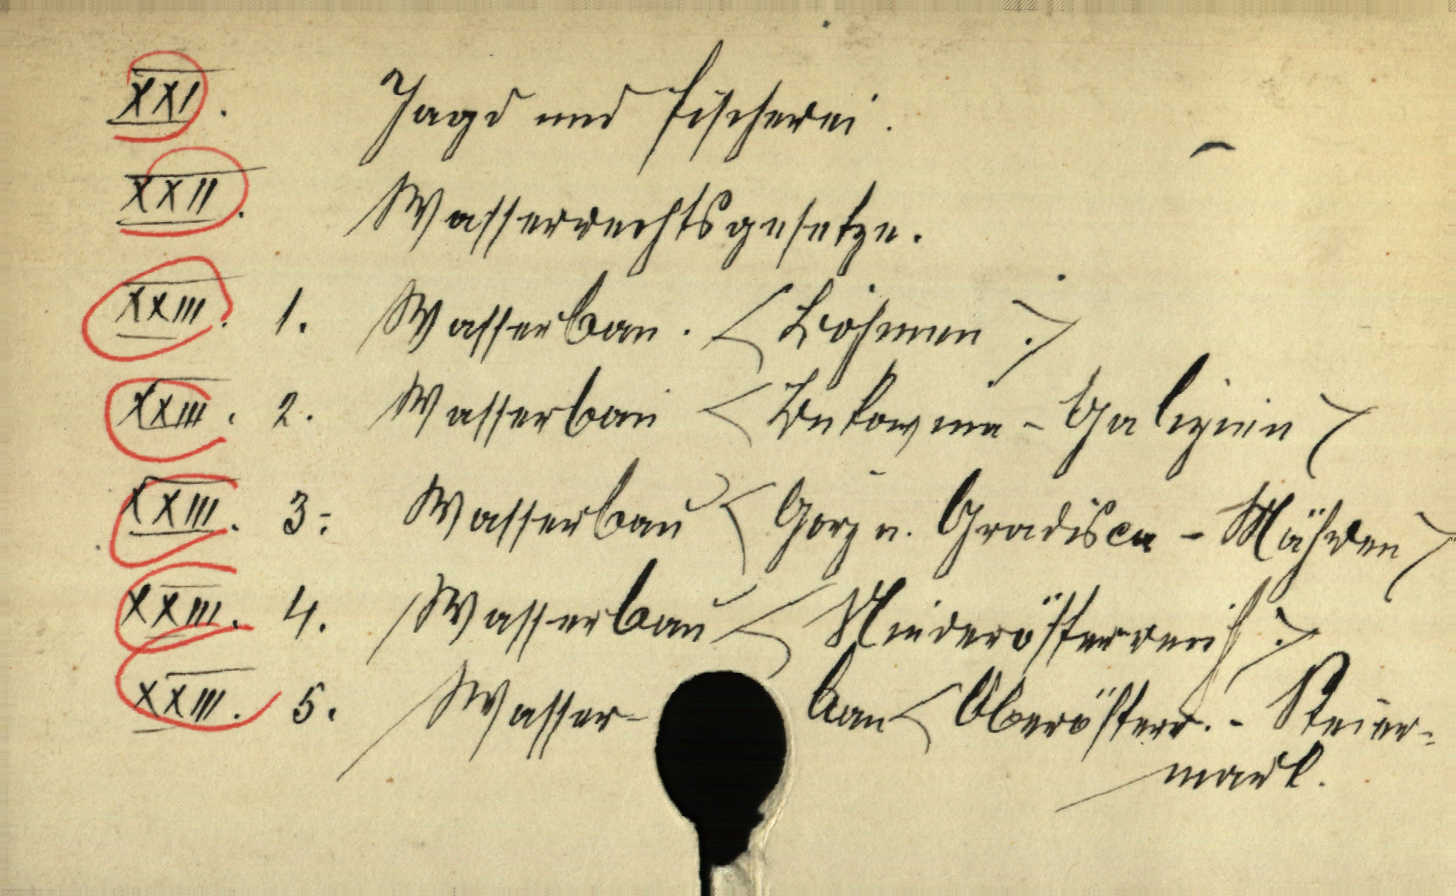 XXI. Jagd und Fischerei.
XXII. Wasserrechtsgesetze.
XXIII. 1. Wasserbau. <Böhmen.>
XXIII. 2. Wasserbau <Bukowina - Galizien>
XXIII. 3. Wasserbau <Görz u. Gradisca - Mähren>
XXIII. 4. Wasserbau <Niederösterreich.>
XXIII. 5. Wasserbau <Oberösterr. - Steier-
mark.